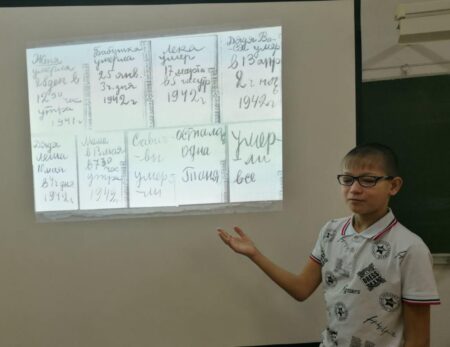 Женя
умерла
28 дек в
12 30 час
утра
1941 г
Бабушка
умерла
25 янв.
3 ч дня
1942 г
Лека
умер
17 марта
в 5 час утр
1942 г
Дядя Ва-
ся умер
в 13 апр
2 ч ноч
1942 г
Дядя
Леша
10 мая
в 4 ч дня
1942 г
Мама
в 13 мая
в 7 30 час
утра
1942 г
Сави-
вы
умер-
ли
Остала
одна
Таня
умер-
ли
все